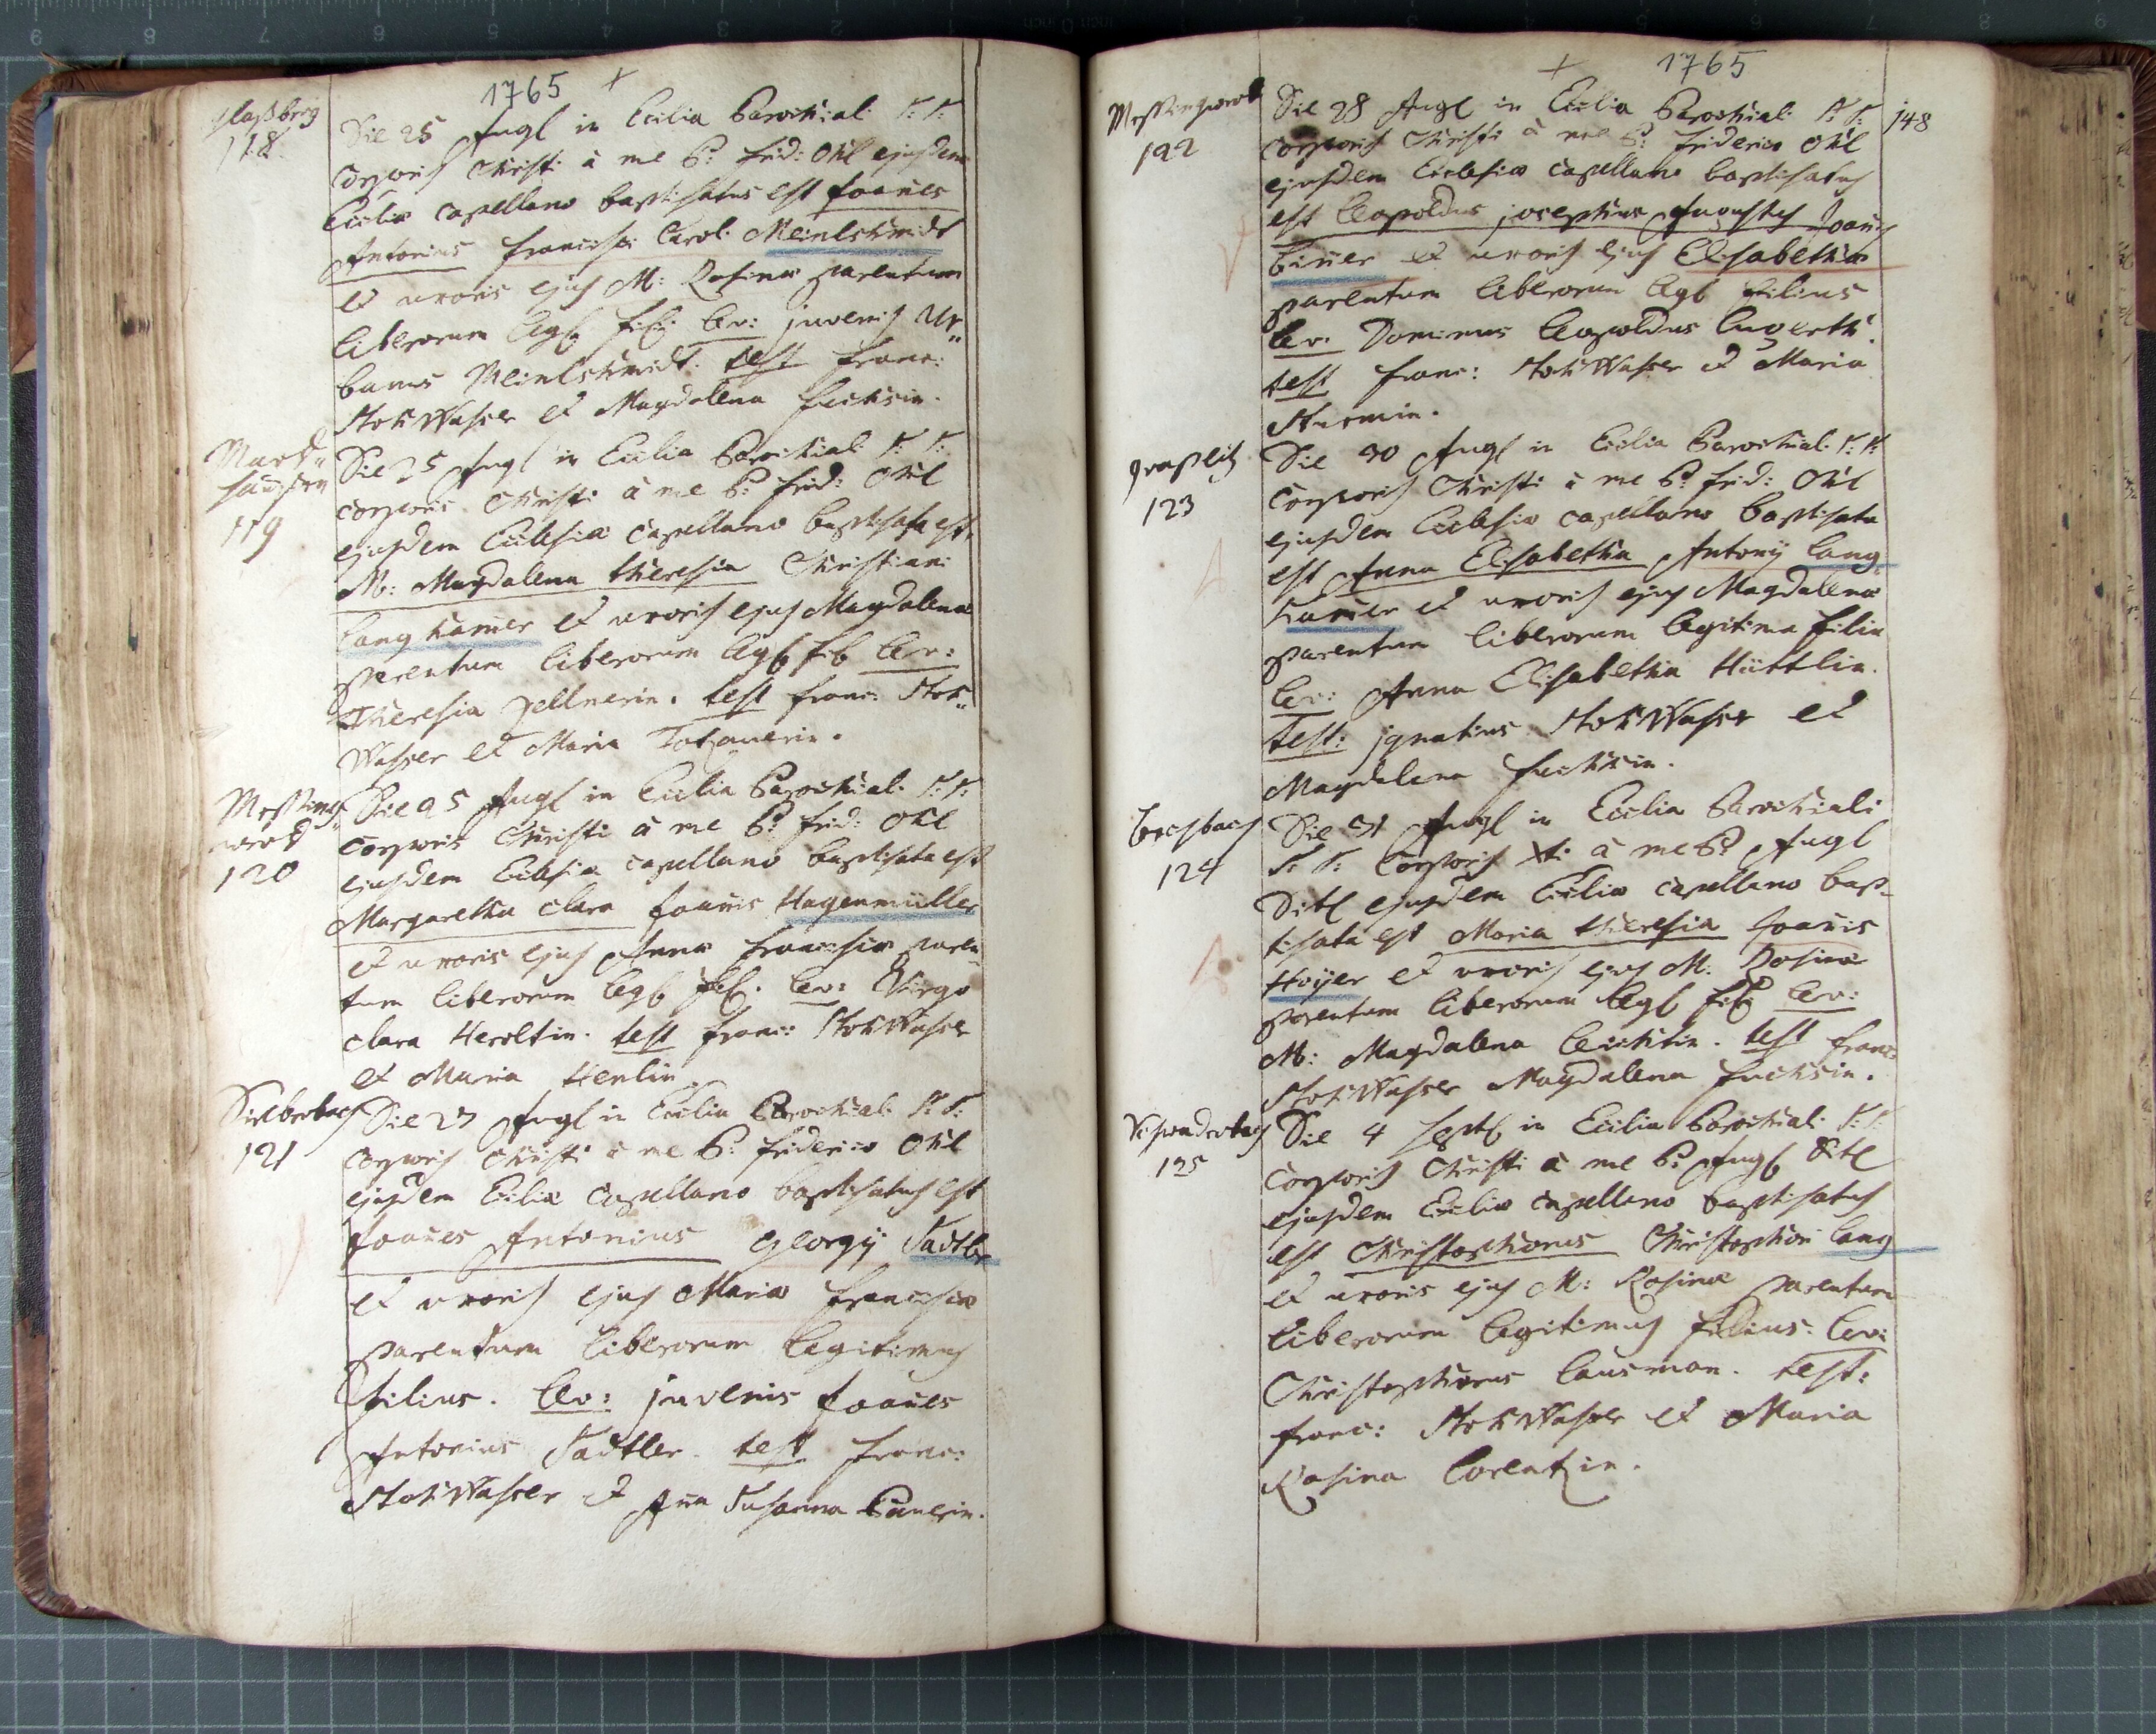 1765
Glaßberg
118.
Die 25 Aug in Ecclia Parochial: S: S:
Corporis Christi à me P: Frid: Ohl ejusdem
Eccliæ Capellano baptisatus est Joañes
Antonius Francisci Caroli Meinlschmidt
et uxoris ejus M: Rosinæ parentum
liberorum leg fil: lev: juvenis Ur„
banus Meinlschmidt. test Franc:
StohWasser et Magdalena Fuchsin.
Mark„
hausen
119
Die 25 Aug in Ecclia Parochial: S: S:
Corporis Christi à me P: Frid: Ohl
ejusdem Ecclesiæ Capellano baptisata est
M: Magdalena Theresia Christiani
Langhamer et uxoris ejus Magdalenæ
parentum liberorum leg fil lev:
Theresia Zellnerin. test Franc: Stoh„
Wasser et Maria
Messing„
werk
120
Die 25 Aug in Ecclia Parochial: S: S:
Corporis Christi à me P: Frid: Ohl
ejusdem Ecclesiæ Capellano baptisata est
Margaretha Clara Joañis Hagenmüller
et uxoris ejus Annæ Franciscæ paren
tum liberorum leg fil. lev: Virgo
Clara Heroltin. test Franc: StohWasser
et Maria Henlin
Sielberbach
121
Die 27 Aug in Ecclia Parochial: S: S:
Corporis Christi à me P: Friderico Ohl
ejusdem Eccliæ Capellano baptisatus est
Joañes Antonius Georgij Sadtler
et uxoris ejus Mariæ Franciscæ
parentum liberorum legitimus
filius. lev: juvenis Joañes
Antonius Sadtler. test Franc:
StohWasser et Aña Susanna
1765
148
Messingwerk
122
Die 28 Aug in Ecclia Parochial: S: S:
Corporis Christi à me P: Friderico Ohl
ejusdem Ecclesiæ Capellano baptisatus
est Leopoldus Josephus Augustus Joañis
Biñer et uxoris ejus Elisabethæ
parentum liberorum leg filius
lev: Dominus Leopoldus
test Franc: StohWasser et Maria
Sturmin.
Graßlitz
123
Die 30 Aug in Ecclia Parochial: S: S:
Corporis Christi à me P: Frid: Ohl
ejusdem Ecclesiæ Capellano baptisata
est Anna Elisabetha Antonij Lang
hamer et uxoris ejus Magdalenæ
parentum liberorum legitima filia
lev: Anna Elisabetha Hüttlin.
test: Ignatius StohWasser et
Magdalena Fuchsin.
124
Die 31 Aug in Ecclia Parochiali
S: S: Corporis Xti à me P: Aug
Ditl ejusdem Eccliæ Capellano bap-
tisata est Maria Theresia Joañis
Hoyer et uxoris ejus M: Rosinæ
parentum liberorum leg fil lev:
M: Magdalena test Franc:
StohWasser Magdalena Fuchsin.
Schwaderbach
125
Die 4 Sept in Ecclia Parochial: S: S:
Corporis Christi à me P: Aug Ditl
ejusdem Eccliæ Capellano baptisatus
est Christophorus Christophori Lang
et uxoris ejus M: Rosinæ parentum
liberorum legitimus filius: lev:
Christophorus Lausman. test:
Franc: StohWasser et Maria
Rosina Lorentzin.